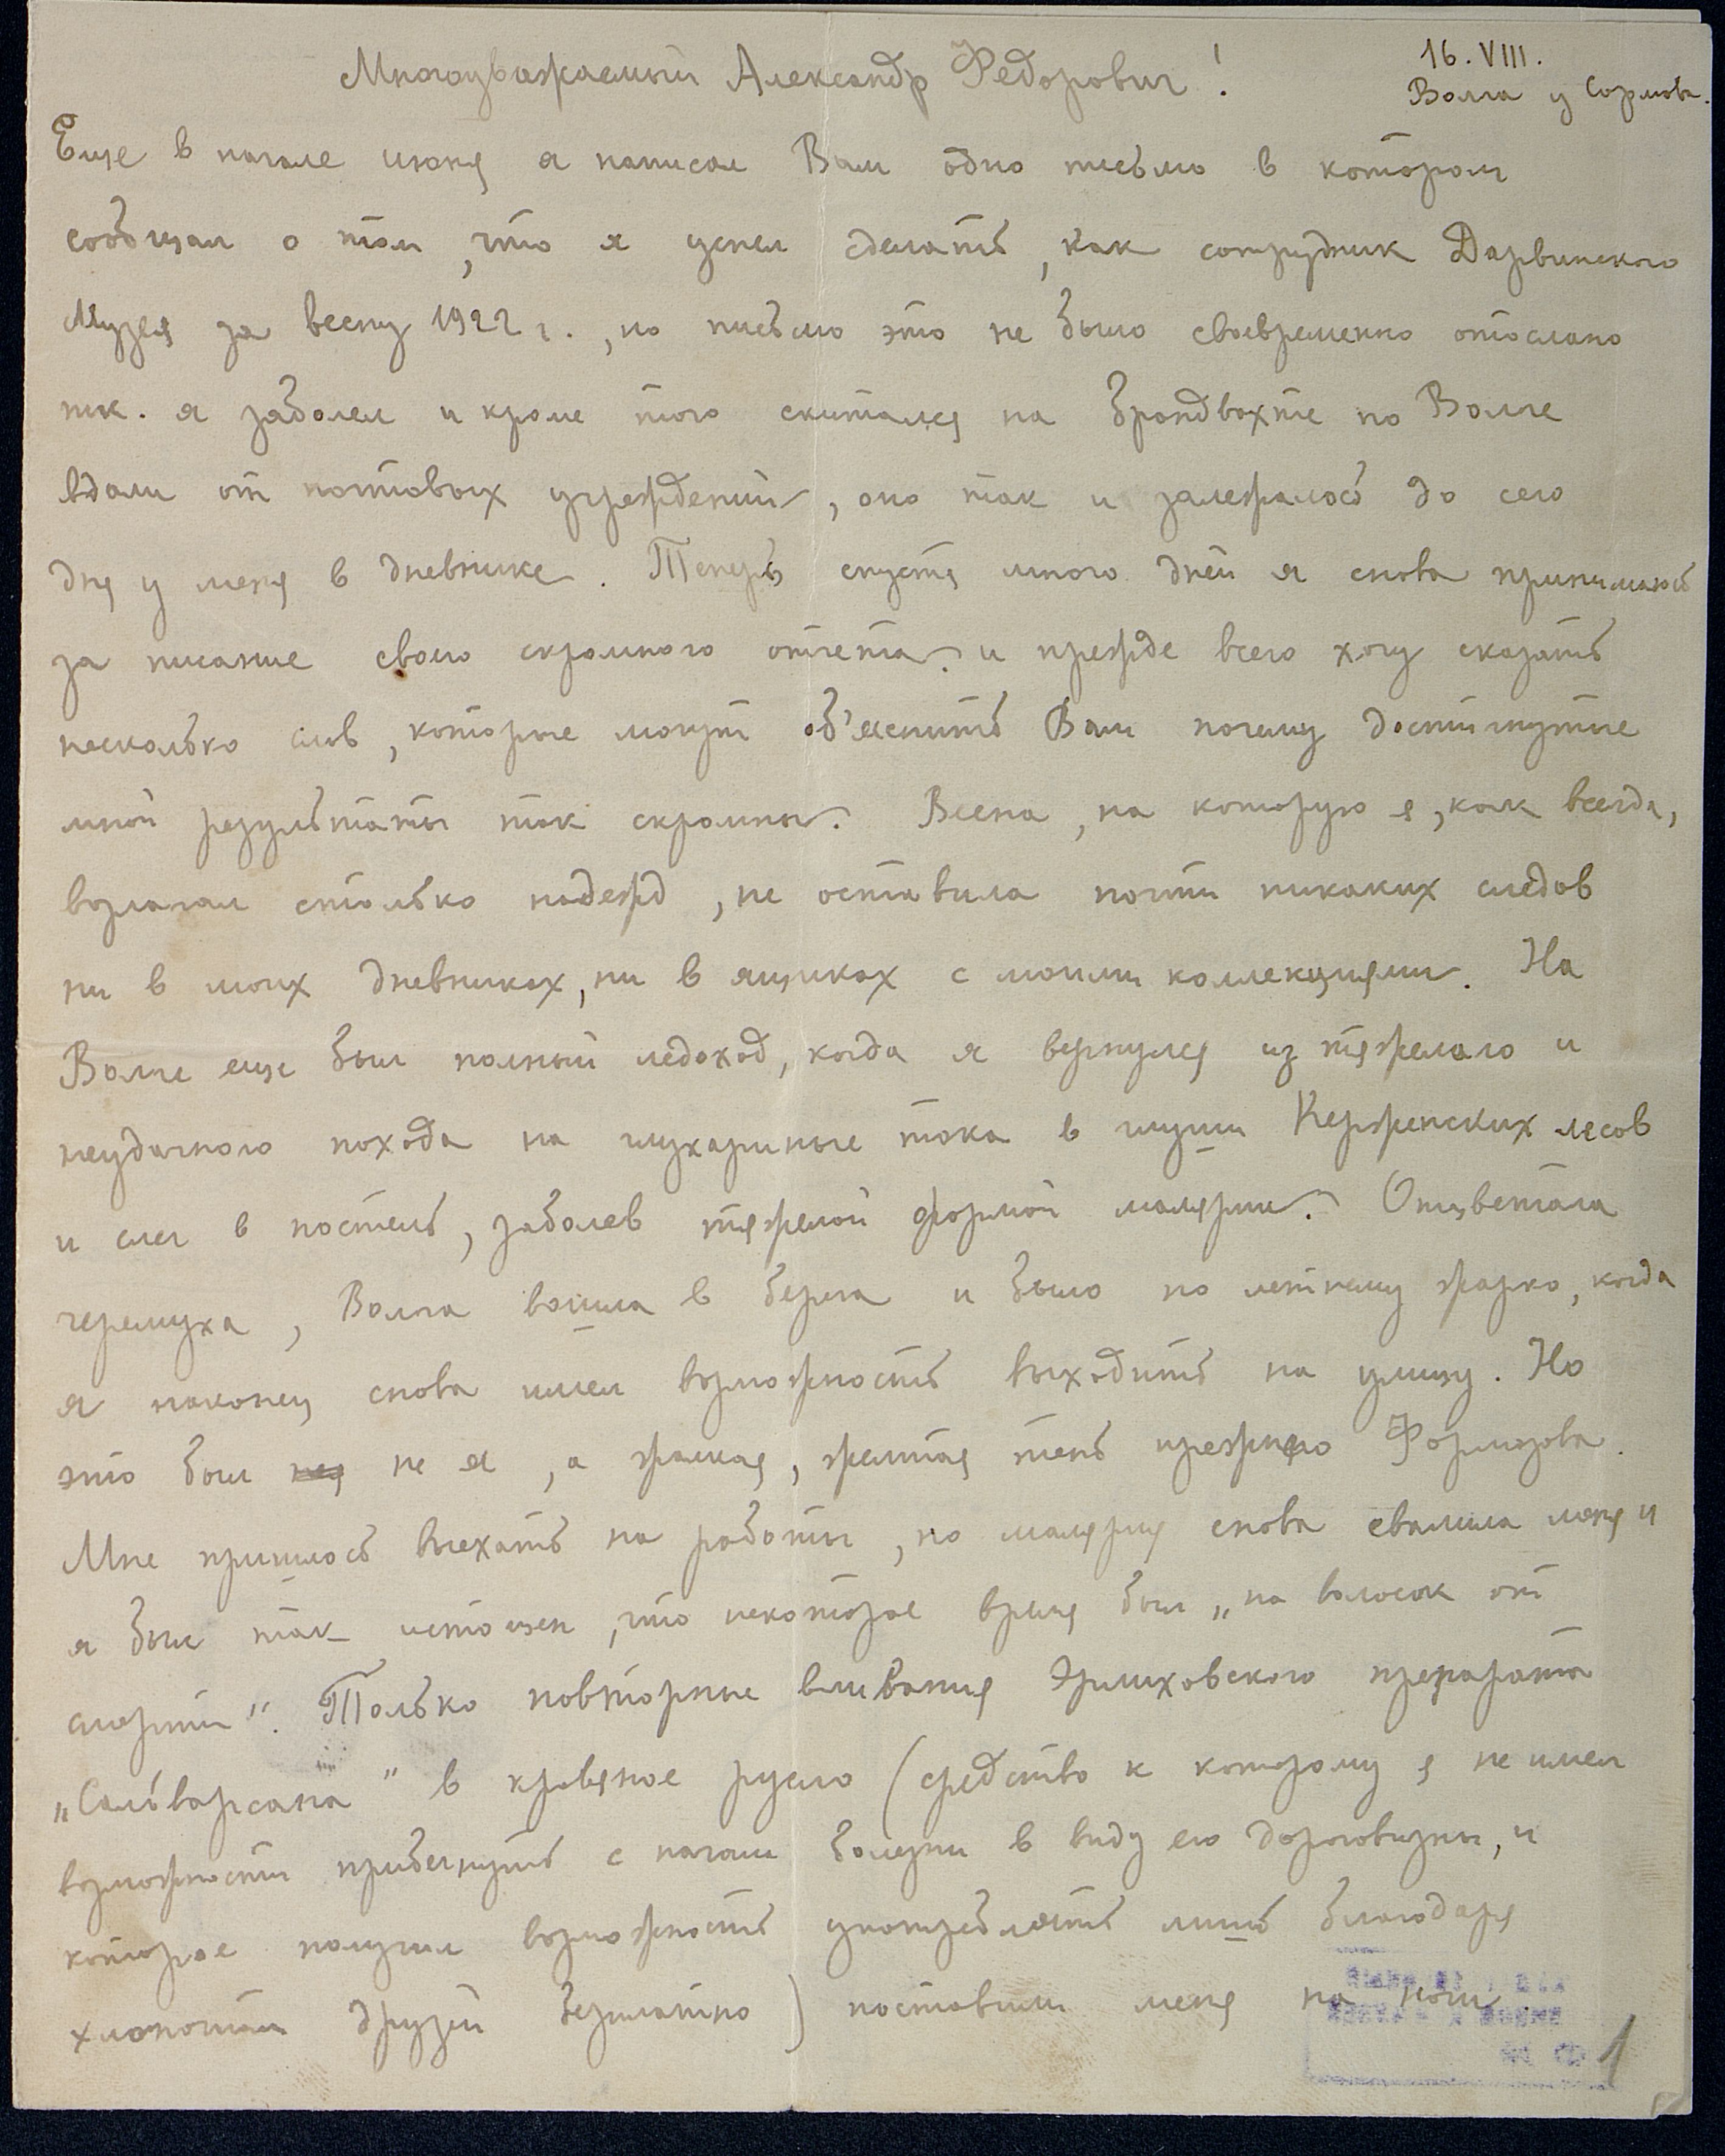 16.VIII.
Волга у Сормова.
Многоуважаемый Александр Федорович!
Еще в начале июня я написал Вам одно письмо в котором
сообщал о том, что я успел сделать, как сотрудник Дарвинского
Музея за весну 1922 г., но письмо это не было своевременно отослано
т.к. я заболел и кроме того скитался на брандвахте по Волге
вдали от почтовых учреждений, оно так и залежалось до сего
дня у меня в дневнике. Теперь спустя много дней я снова принимаюсь
за писание своего скромного отчета и прежде всего хочу сказать
несколько слов, которые могут об'яснить Вам почему достигнутые
мной результаты так скромны. Весна, на которую я, как всегда,
возлагал столько надежд, не оставила почти никаких следов
ни в моих дневниках, ни в ящиках с моими коллекциями. На
Волге еще был полный ледоход, когда я вернулся из тяжелого и
неудачного похода на глухариные тока в глуши Керженских лесов
и слег в постель, заболев тяжелой формой малярии. Отцветала
черемуха, Волга вошла в берега и было по летнему жарко, когда
я наконец снова имел возможность выходить на улицу. Но
это был не я, а жалкая, желтая тень прежнего Формозова.
Мне пришлось выехать на работы, но малярия снова свалила меня и
я был так истощен, что некоторое время был „на волосок от
смерти". Только повторные вливания Эрлиховского препарата
„Сальварсана" в кровяное русло (средство к которому я не имел
возможности прибегнуть с начала болезни в виду его дороговизны, и
которое получил возможность употреблять лишь благодаря
хлопотам друзей бесплатно) поставили меня на ноги.
1